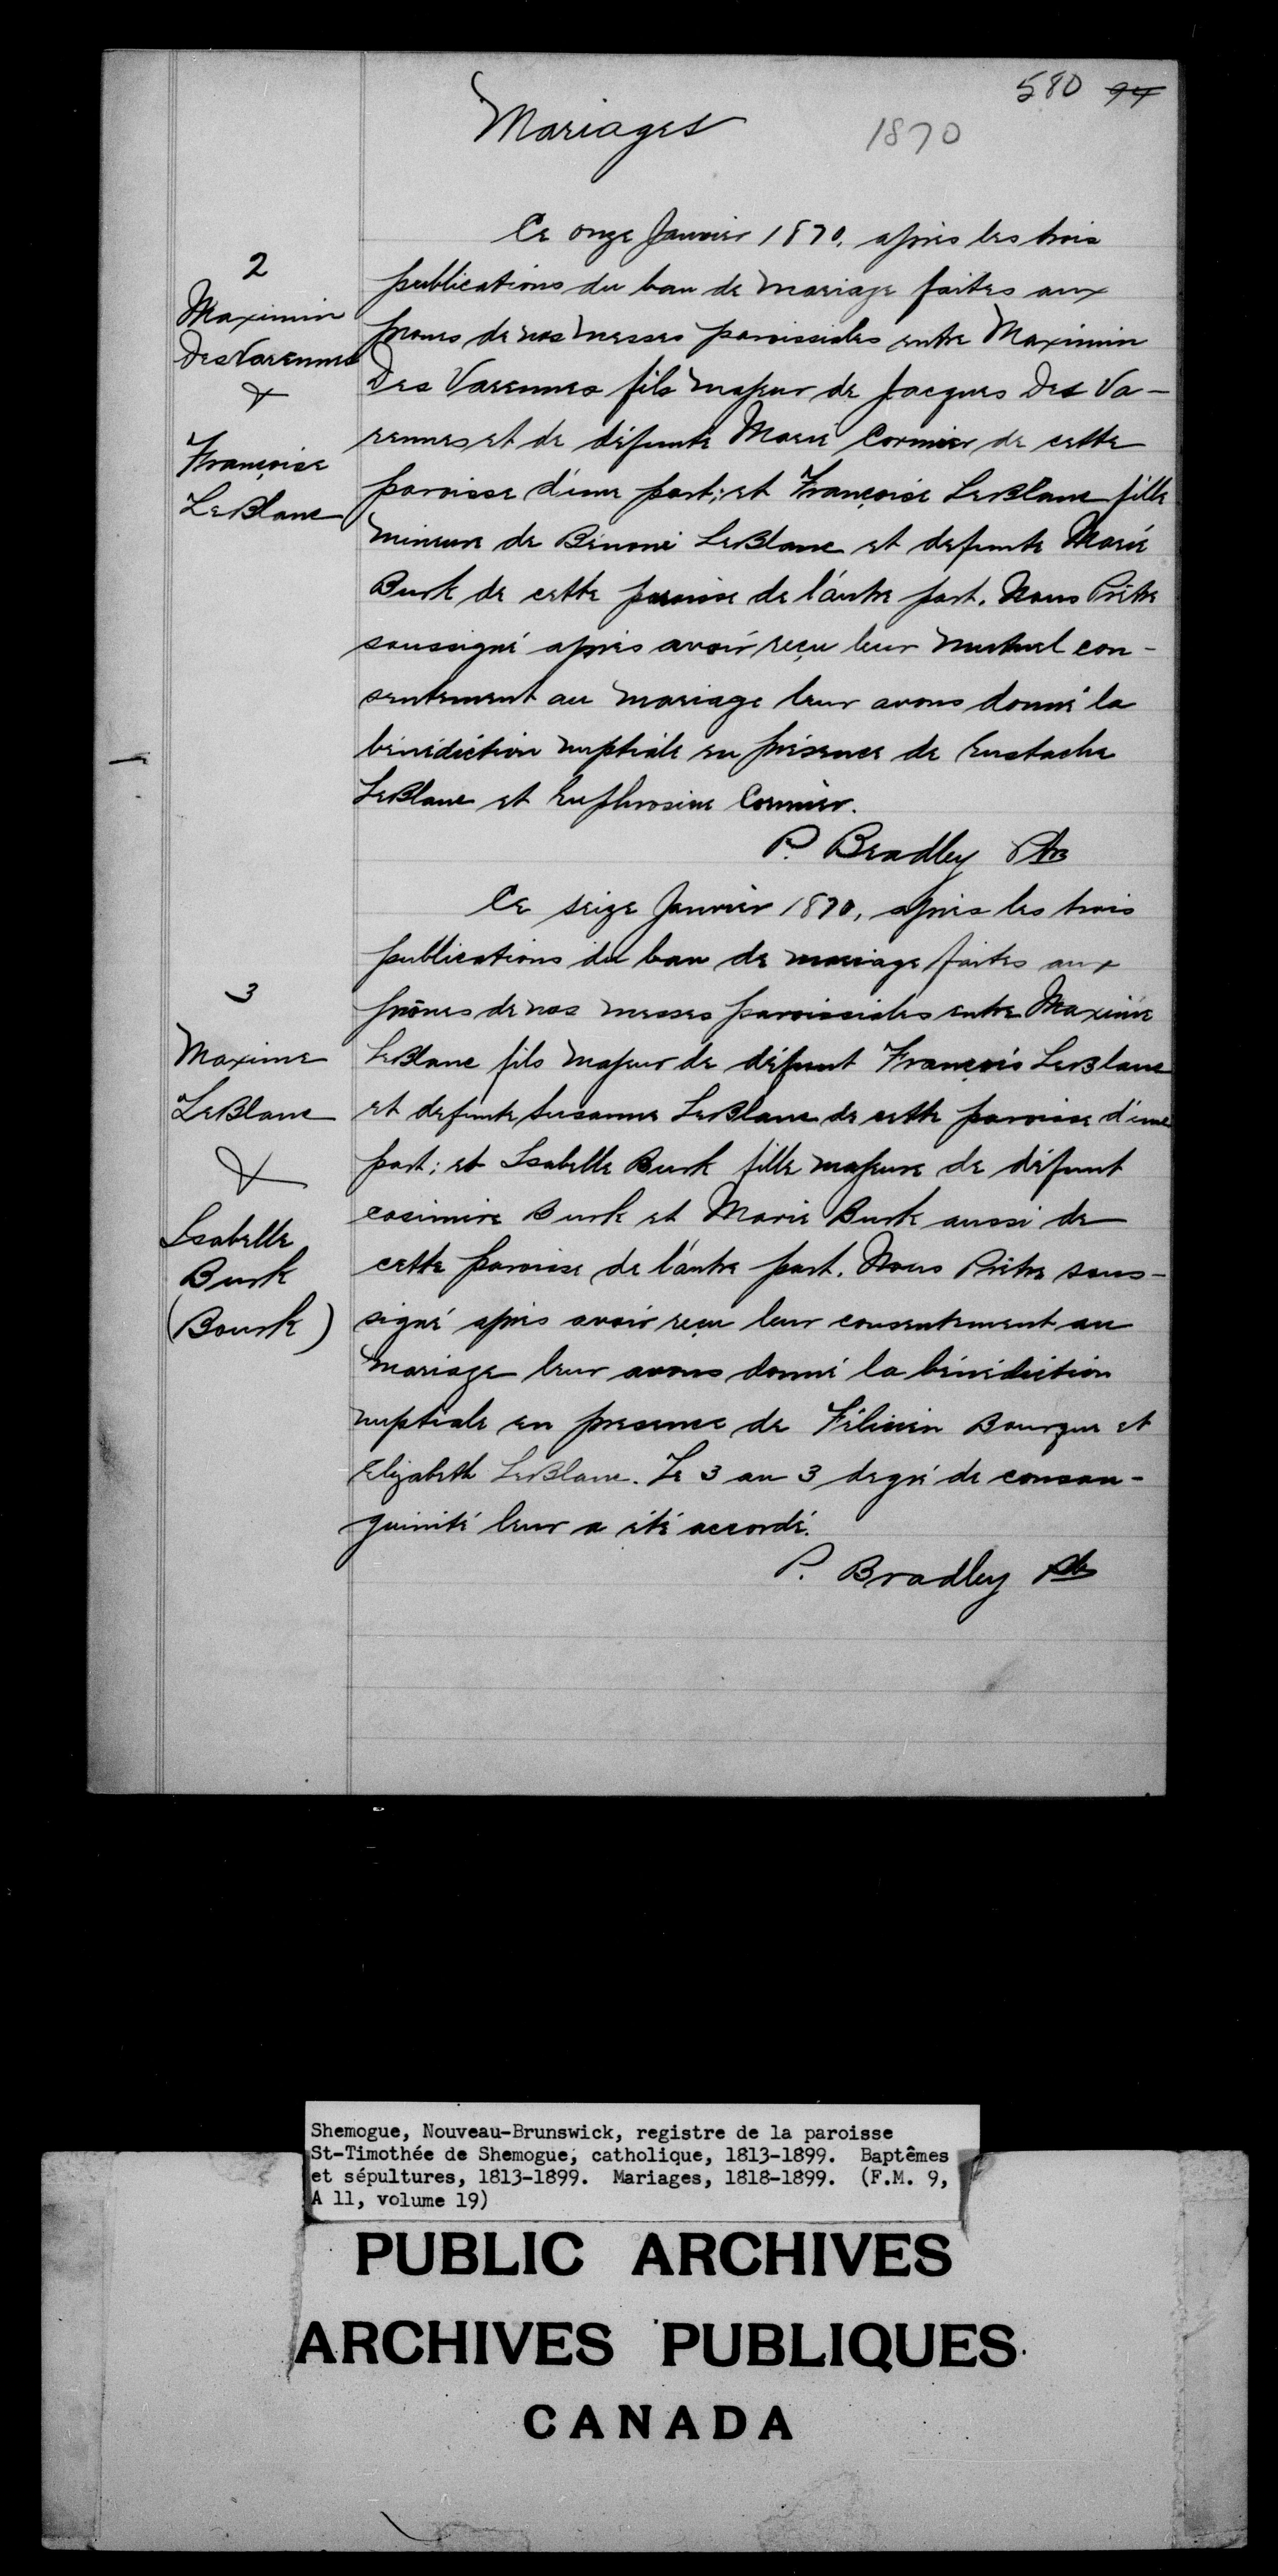 580 94
Mariages
1870
2
Maximin
DesVarennes
&
Françoise
LeBlanc
Ce onze Janvier 1870, après les trois
publications du ban de mariage faites aux
prones de nos messes paroissiales entre Maximin
Des Varennes fils majeur de Jacques Des Va-
rennes et de défunte Marie Cormier de cette
paroisse d'une part; et Françoise LeBlanc fille
mineure de Bénoni LeBlanc et defunte Marie
Burk de cette paroisse de l'autre part. Nous Prêtre
soussigné après avoir reçu leur mutuel con-
sentement au mariage leur avons donné la
bénédiction nuptiale en présence de Eustache
LeBlanc et Euphrosine Cormier.
P. Bradley Ptre
3
Maxime
LeBlanc
&
Isabelle
Burk
(Bourk)
Ce seize Janvier 1870, après les trois
publications du ban de mariage faites aux
prônes de nos messes paroissiales entre Maxime
LeBlanc fils majeur de défunt François LeBlanc
et defunte Susanne LeBlanc de cette paroisse d'une
part; et Isabelle Burk fille majeure de défunt
casimire Burk et Marie Burk aussi de
cette paroisse de l'autre part. Nous Prêtre sous-
signé après avoir reçu leur consentement au
mariage leur avons donné la bénédiction
nuptiale en presence de Félicien Bourque et
Elizabeth LeBlanc. Le 3 au 3 degré de consan-
guinité leur a été accordé.
P. Bradley Ptre
Shemogue, Nouveau-Brunswick, registre de la paroisse
St-Timothée de Shemogue, catholique, 1813-1899. Baptêmes
et sépultures, 1813-1899. Mariages, 1818-1899. (F.M. 9,
A 11, volume 19)
PUBLIC ARCHIVES
ARCHIVES PUBLIQUES
CANADA